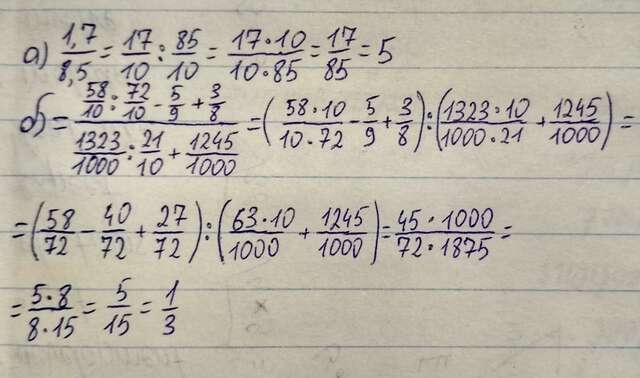 а) 1,7/8,5 = 17/10 : 85/10 = 17·10/10·85 = 17/85 = 5
б) = (58/10 : 72/10 - 5/9 + 3/8)/(1323/1000 : 21/10 + 1245/1000) = (58·10/10·72 - 5/9 + 3/8) : (1323·10/1000·21 + 1245/1000) =
= (58/72 - 40/72 + 27/72) : (63·10/1000 + 1245/1000) = 45·1000/72·1875 =
= 5·8/8·15 = 5/15 = 1/3